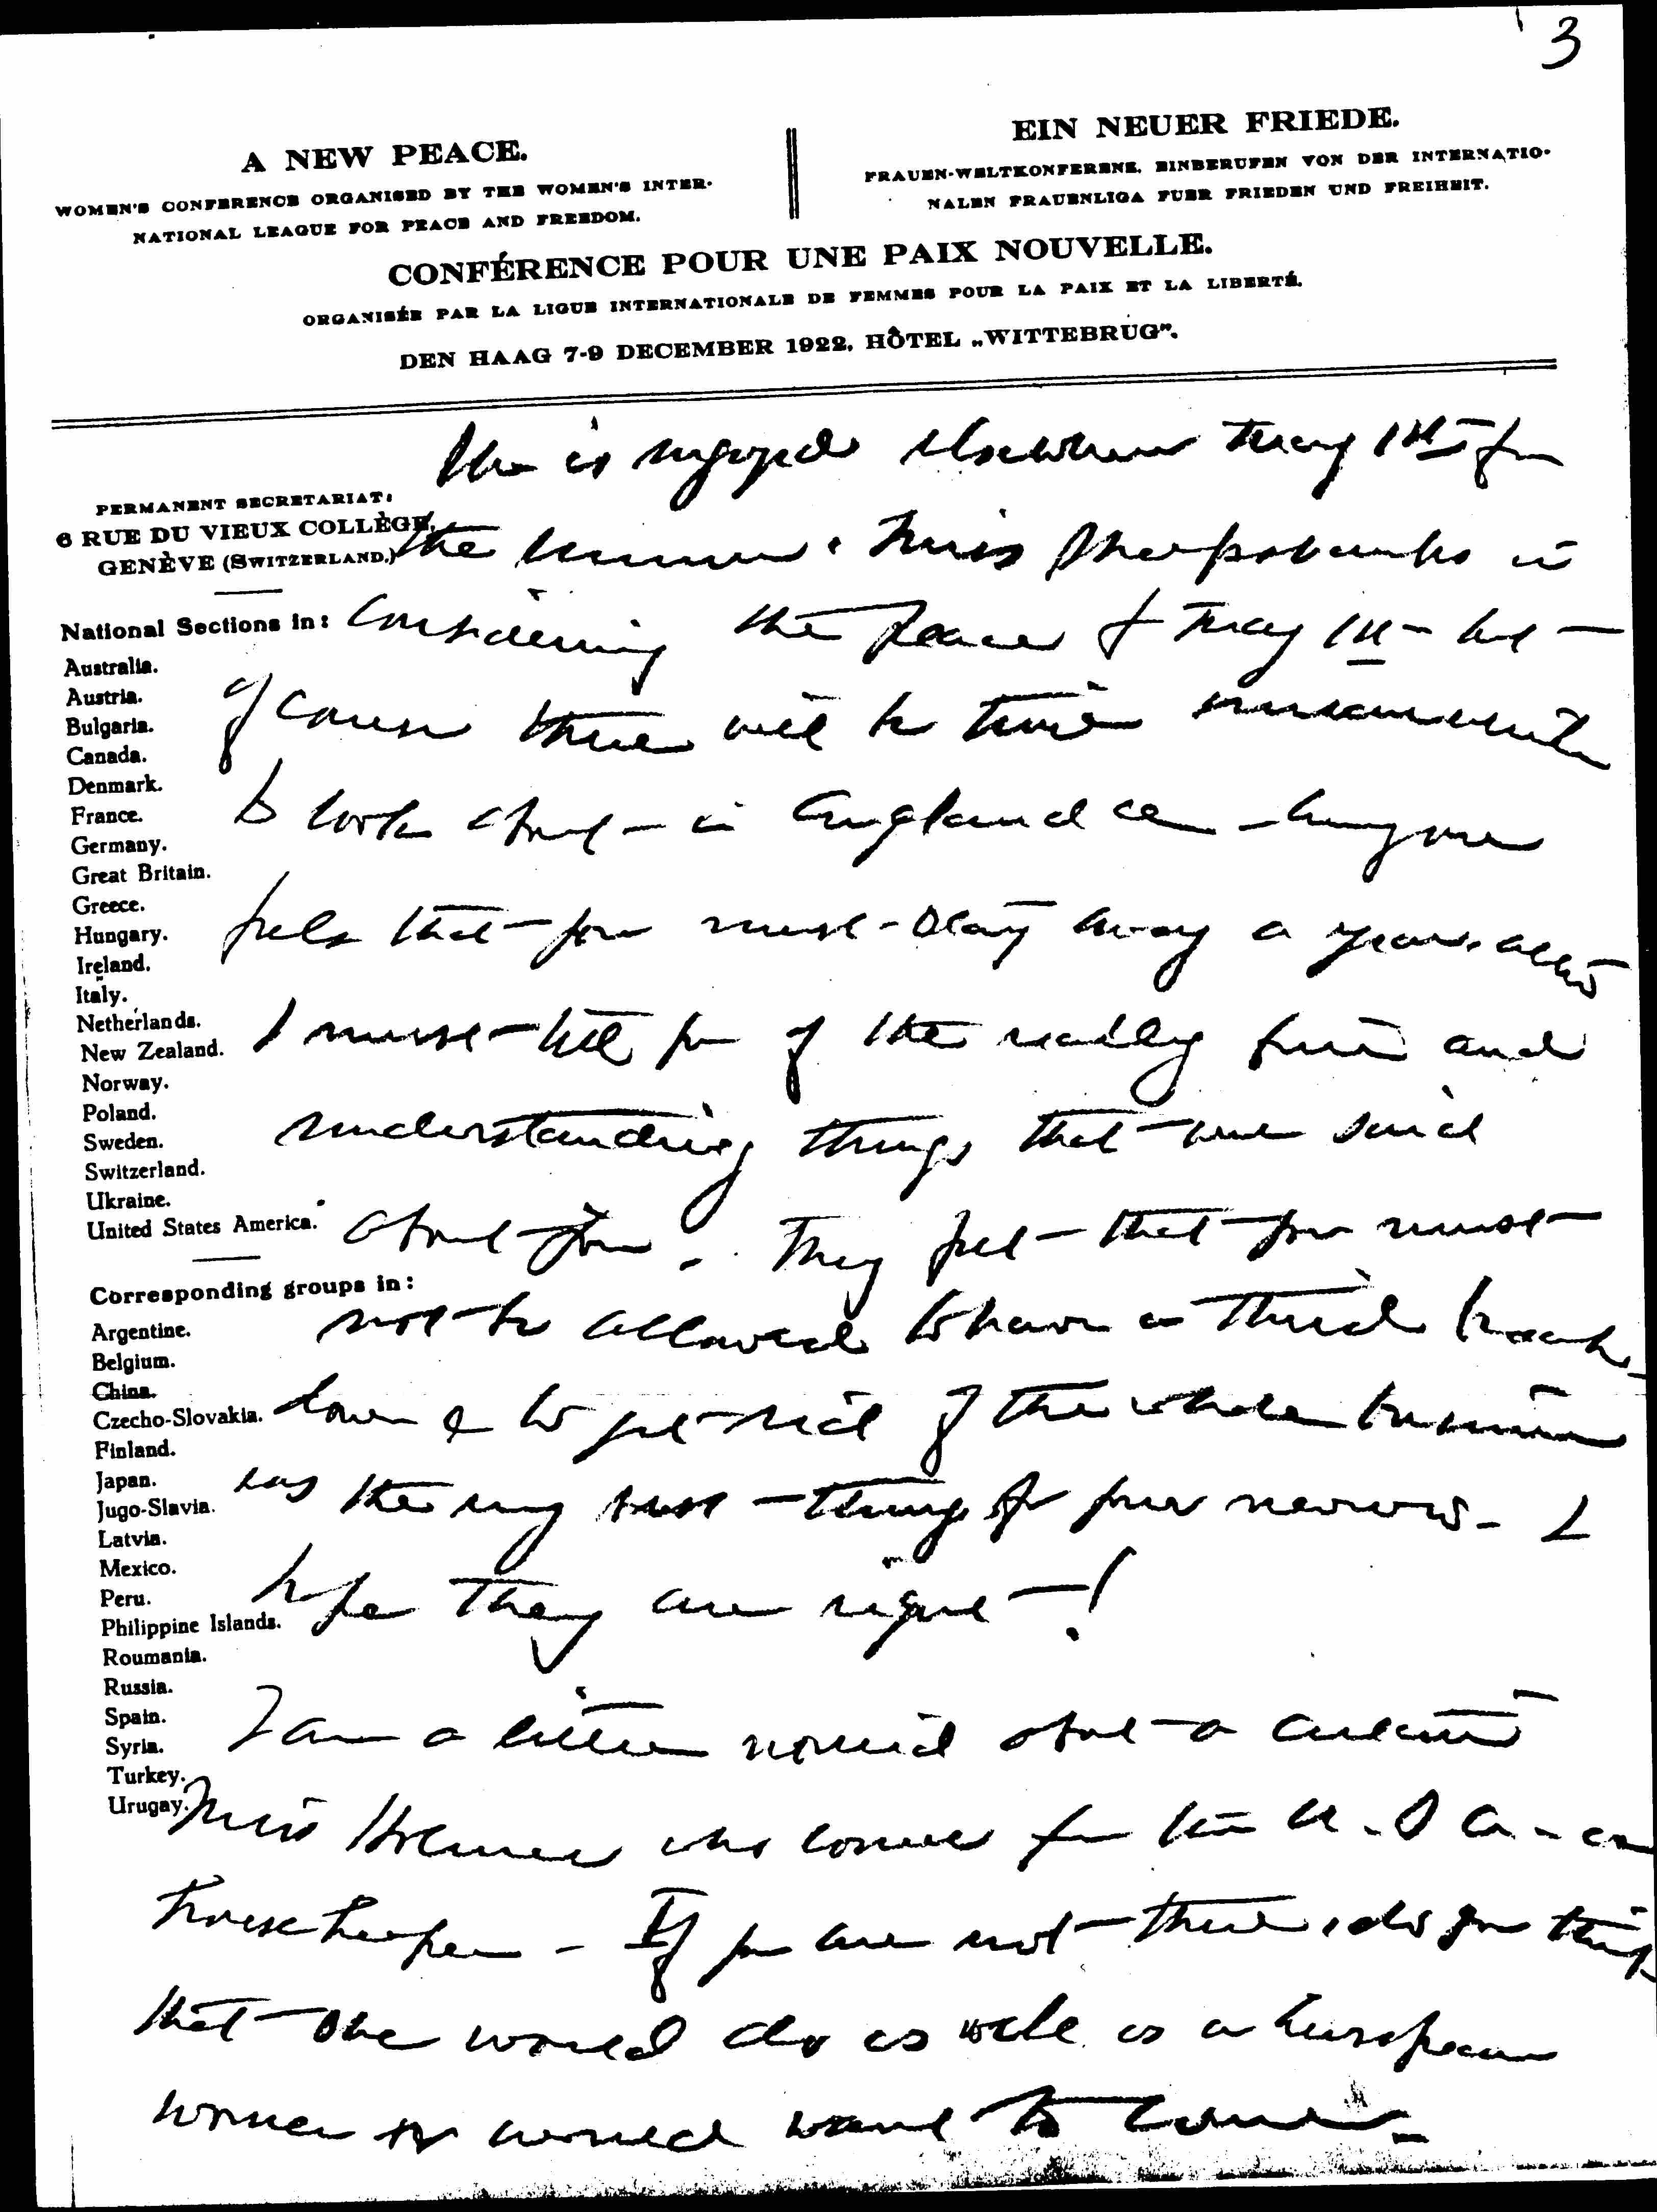 3
A NEW PEACE.
WOMEN'S CONFERENCE ORGANISED BY THE WOMEN'S INTER-
NATIONAL LEAGUE FOR PEACE AND FREEDOM.
EIN NEUER FRIEDE.
FRAUEN-WELTKONFERENE, EINBERUFEN VON DER INTERNATIO-
NALEN FRAUENLIGA FUER FRIEDEN UND FREIHEIT.
CONFÉRENCE POUR UNE PAIX NOUVELLE.
ORGANISÉE PAR LA LIGUE INTERNATIONALE DE FEMMES POUR LA PAIX ET LA LIBERTÉ.
DEN HAAG 7-9 DECEMBER 1922, HÔTEL „WITTEBRUG".
PERMANENT SECRETARIAT:
6 RUE DU VIEUX COLLÈGE,
GENÈVE (SWITZERLAND.)
National Sections in:
Australia.
Austria.
Bulgaria.
Canada.
Denmark.
France.
Germany.
Great Britain.
Greece.
Hungary.
Ireland.
Italy.
Netherlands.
New Zealand.
Norway.
Poland.
Sweden.
Switzerland.
Ukraine.
United States America.
Corresponding groups in:
Argentine.
Belgium.
China.
Czecho-Slovakia.
Finland.
Japan.
Jugo-Slavia.
Latvia.
Mexico.
Peru.
Philippine Islands.
Roumania.
Russia.
Spain.
Syria.
Turkey.
Urugay.
She is engaged elsewhere May 1st for
the summer. Miss Sheepshanks is
considering the place of May 1st but
of course there will be time
to look about in England &
feels that you must stay away a year.
I must tell you of the really fine and
understanding things that were said
about you. They feel that you must
not be allowed to have a third break
down & to get rid of the whole business
was the very best thing for your nerves. I
hope they are right!
I am a little worried about a
Miss Holmes who comes from the U.S.A. as
housekeeper - If you are not there, do you think
that she would do as well as a European
woman or would want to come.